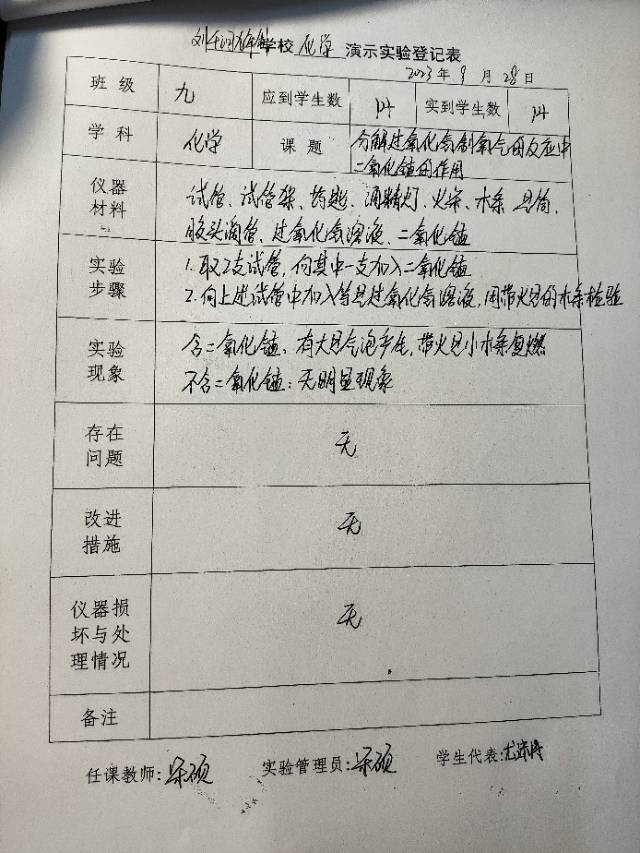 学校 化学 演示实验登记表
2023年9月28日
班级 九 应到学生数 14 实到学生数 14
学科 化学 课题 分解过氧化氢制氧气的反应中
二氧化锰的作用
仪器 试管、试管架、药匙、酒精灯、火柴、木条、量筒、
材料 胶头滴管、过氧化氢溶液、二氧化锰
实验 1.取2支试管,向其中一支加入二氧化锰
步骤 2.向上述试管中加入等量过氧化氢溶液,用带火星的木条检验
实验 含二氧化锰:有大量气泡产生,带火星小木条复燃
现象 不含二氧化锰:无明显现象
存在
问题
无
改进
措施
无
仪器损
坏与处
理情况
无
备注
任课教师: 实验管理员: 学生代表: